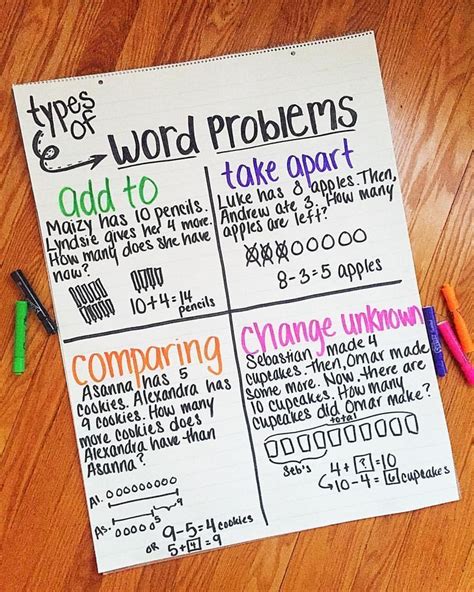 types of
word problems
add to
Maizy has 10 pencils.
Lyndsie gives her 4 more.
How many does she have
now?
10+4=14
pencils
take apart
Luke has 8 apples. Then,
Andrew ate 3. How many
apples are left?
8-3=5 apples
comparing
Asanna has 5
cookies. Alexandra has
9 cookies. How many
more cookies does
Alexandra have than
Asanna?
Al.
As.
5
9
9-5=4 cookies
OR 5+4=9
change unknown
Sebastian made 4
cupcakes. Then, Omar made
some more. Now there are
10 cupcakes. How many
cupcakes did Omar make?
total
Seb's
4+?=10
10-4=6 cupcakes